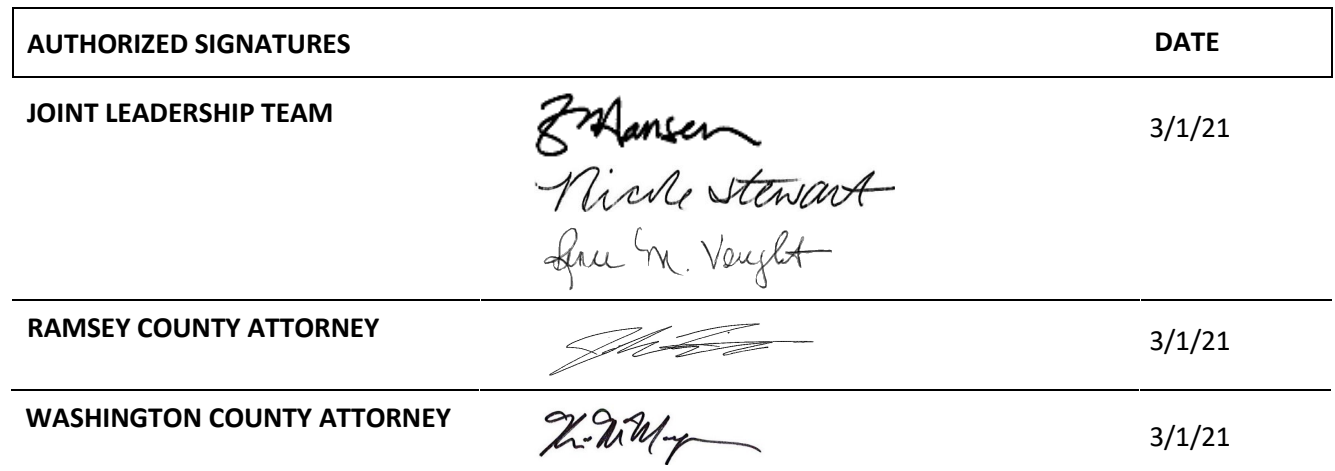 AUTHORIZED SIGNATURES DATE
JOINT LEADERSHIP TEAM Hansen 3/1/21
Nicole Stewart
M. Vought
RAMSEY COUNTY ATTORNEY 3/1/21
WASHINGTON COUNTY ATTORNEY 3/1/21